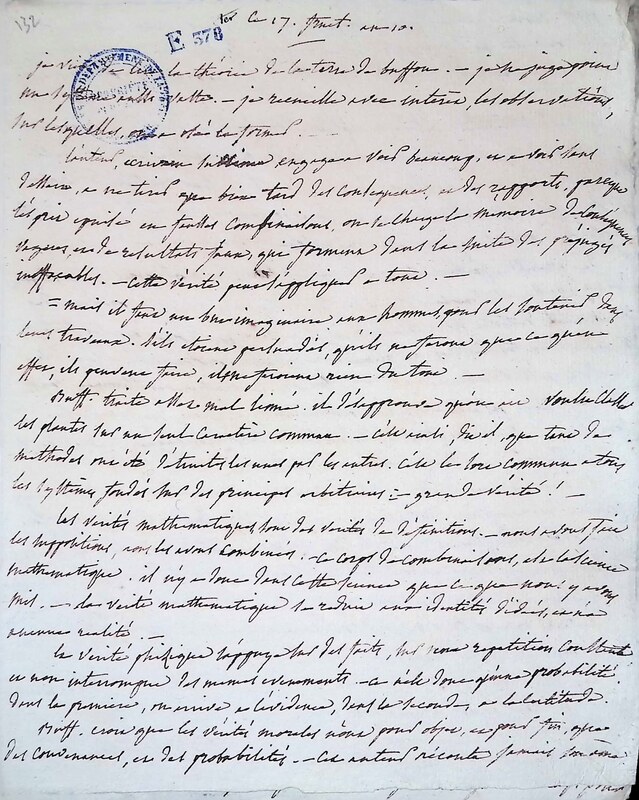 132
E 378
ce 17. fruct. an 10.
je viens de lire la théorie de la terre de buffon. — je ne juge point
un système aussi vaste. — je recueille avec intérêt, les observations,
sur lesquelles, on a osé la former.
l'auteur, écrivain sublime engage a voir beaucoup, et a voir sans
dessein, a ne tirer que bien tard des conséquences, et des rapports, parceque
l'esprit épuisé en fausses combinaisons, on se charge la mémoire de conséquences
vagues, et de résultats faux, qui forment dans la suite des préjugés
ineffaçables. — cette vérité peut s'appliquer a tout. —
= mais il faut un but imaginaire aux hommes, pour les soutenir dans
leurs travaux. s'ils étaient persuadés, qu'ils ne feront que ce qu'en
effet, ils peuvent faire, ils ne feraient rien du tout. —
Buff. traite assez mal Linné. il désapprouve qu'on ait voulu classer
les plantes sur un seul caractère commun. — c'est ainsi, dit-il, que tant de
méthodes ont été détruites les unes par les autres. C'est le sort commun a tous
les systèmes fondés sur des principes arbitraires : — grande vérité ! —
les vérités mathématiques, sont des vérités de définitions. — nous avons fait
les suppositions, nous les avons combinées. — ce corps de combinaisons, est la science
mathématique. il n'y a donc dans cette science que ce que nous y avons
mis. — la vérité mathématique se réduit aux identités d'idées, et n'a
aucune réalité. —
la vérité phisique s'appuye sur des faits, sur une répétition constante
et non interrompue des mêmes événements. — ce n'est donc qu'une probabilité.
dans la première, on arrive a l'évidence, dans la seconde, a la certitude.
Buff. croit que les vérités morales n'ont pour objet, et pour fin, que
des convenances, et des probabilités. — cet auteur jamais